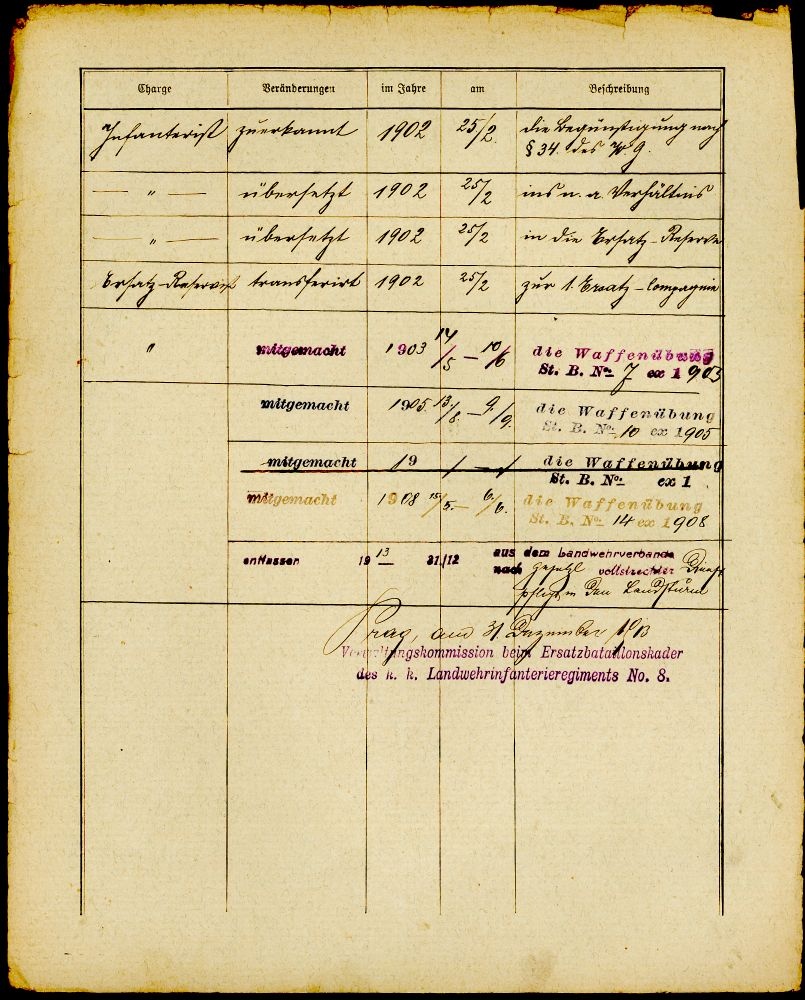 Charge Veränderungen im Jahre am Beschreibung
Infanterist zuerkannt 1902 25/2. die Begünstigung nach
§ 34. des W. G.
— " — übersetzt 1902 25/2 ins n. a. Verhältnis
— " — übersetzt 1902 25/2 in die Ersatz-Reserve
Ersatz-Reservist transferirt 1902 25/2 zur 1. Ersatz-Compagnie
" mitgemacht 1903 14/5 — 10/6 die Waffenübung
St. B. No. 7 ex 1903
mitgemacht 1905. 13/8. — 9/9. die Waffenübung
St. B. No. 10 ex 1905
mitgemacht 19 / — / die Waffenübung
St. B. No. ex 1
mitgemacht 1908 /5. — 6/6. die Waffenübung
St. B. No. 14 ex 1908
entlassen 1913 31./12 aus dem Landwehrverbande
nach gesetzl vollstreckter Dienst
pflicht in den Landsturm
Prag, am 31. Dezember 1913
Verwaltungskommission beim Ersatzbataillonskader
des k. k. Landwehrinfanterieregiments No. 8.